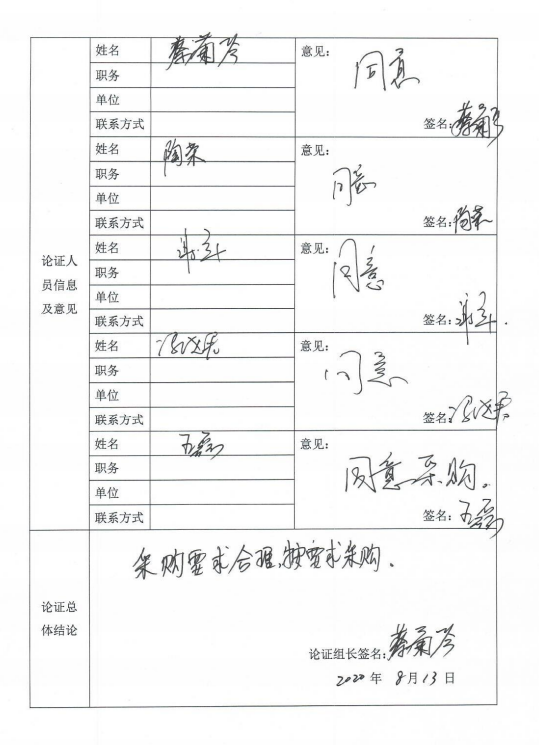 论证人
员信息
及意见
姓名 蔡菊芬
职务
单位
联系方式
意见：
同意
签名：蔡菊芬
姓名 陶荣
职务
单位
联系方式
意见：
同意
签名：陶荣
姓名
职务
单位
联系方式
意见：
同意
签名：
姓名
职务
单位
联系方式
意见：
同意
签名：
姓名 王磊
职务
单位
联系方式
意见：
同意采购。
签名：王磊
论证总
体结论
采购要求合理，按要求采购。
论证组长签名：蔡菊芬
2020 年 8月 13 日